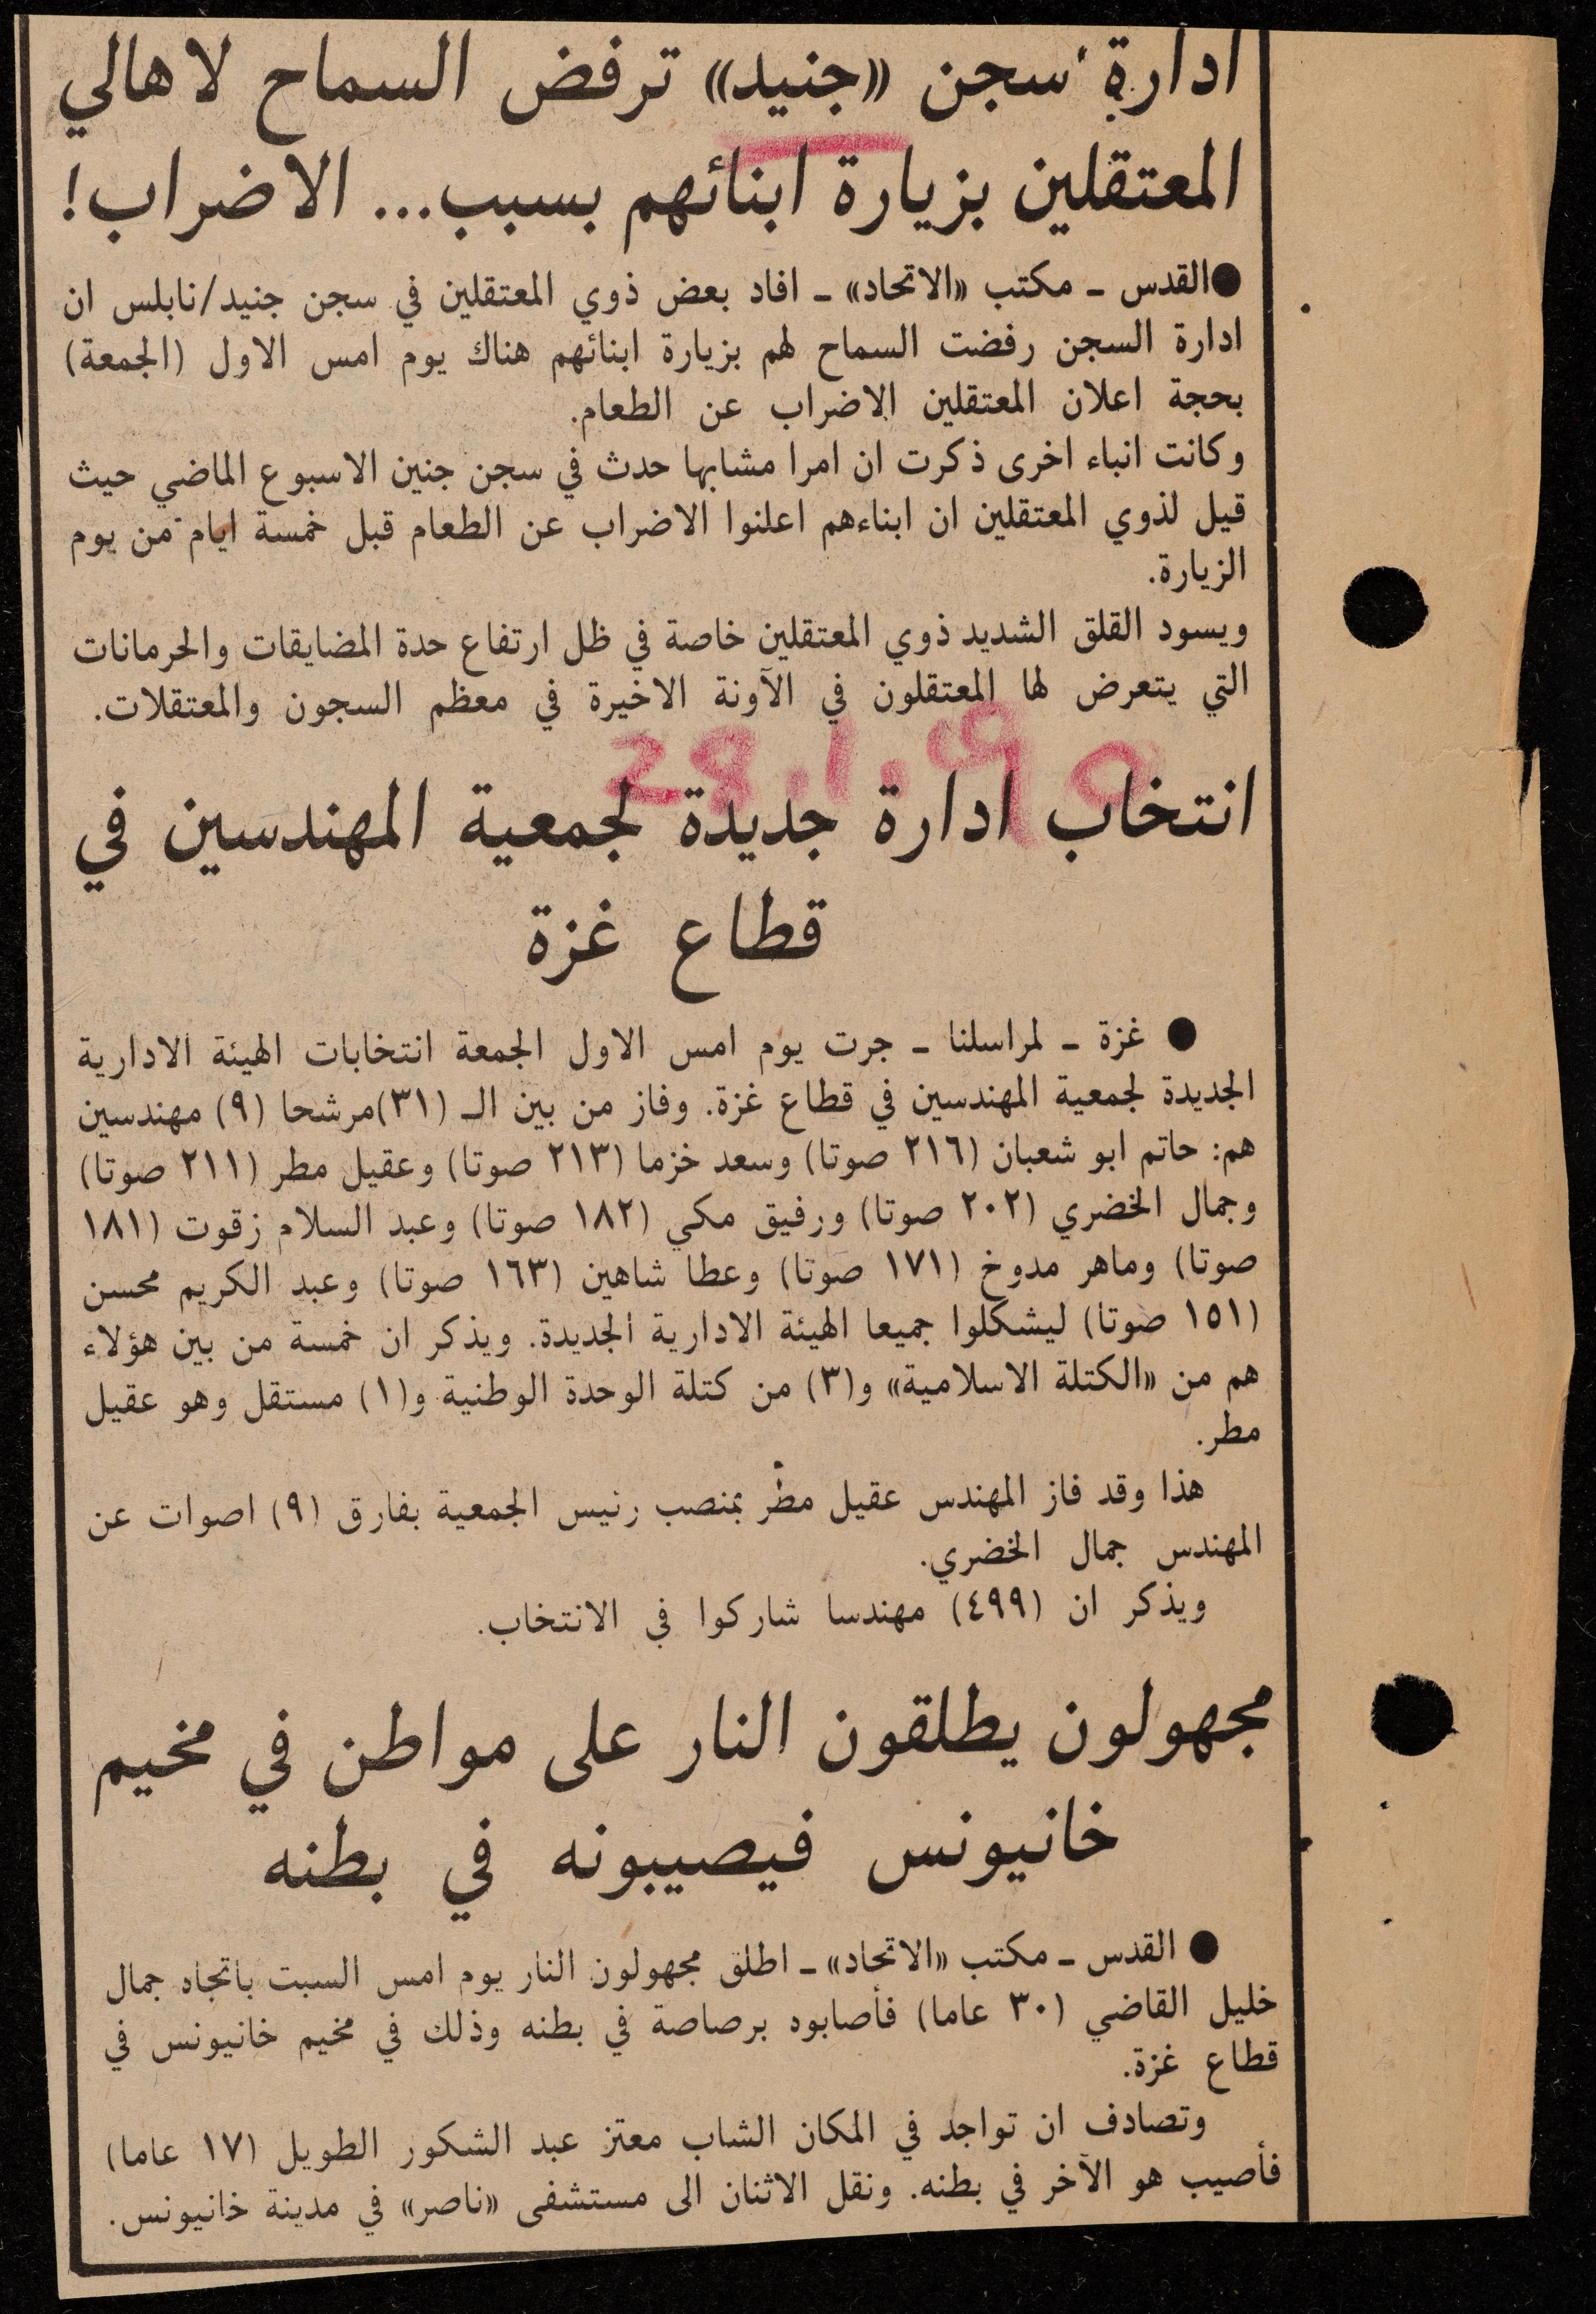 ادارة سجن «جنيد» ترفض السماح لاهالي
المعتقلين بزيارة ابنائهم بسبب... الاضراب!
●القدس ـ مكتب «الاتحاد» ـ افاد بعض ذوي المعتقلين في سجن جنيد/نابلس ان
ادارة السجن رفضت السماح لهم بزيارة ابنائهم هناك يوم امس الاول (الجمعة)
بحجة اعلان المعتقلين الاضراب عن الطعام.
وكانت انباء اخرى ذكرت ان امرا مشابها حدث في سجن جنين الاسبوع الماضي حيث
قيل لذوي المعتقلين ان ابناءهم اعلنوا الاضراب عن الطعام قبل خمسة ايام من يوم
الزيارة.
ويسود القلق الشديد ذوي المعتقلين خاصة في ظل ارتفاع حدة المضايقات والحرمانات
التي يتعرض لها المعتقلون في الآونة الاخيرة في معظم السجون والمعتقلات.
28.1.90
انتخاب ادارة جديدة لجمعية المهندسين في
قطاع غزة
● غزة ـ لمراسلنا ـ جرت يوم امس الاول الجمعة انتخابات الهيئة الادارية
الجديدة لجمعية المهندسين في قطاع غزة. وفاز من بين الـ (٣١)مرشحا (٩) مهندسين
هم: حاتم ابو شعبان (٢١٦ صوتا) وسعد خزما (٢١٣ صوتا) وعقيل مطر (٢١١ صوتا)
وجمال الخضري (٢٠٢ صوتا) ورفيق مكي (١٨٢ صوتا) وعبد السلام زقوت (١٨١
صوتا) وماهر مدوخ (١٧١ صوتا) وعطا شاهين (١٦٣ صوتا) وعبد الكريم محسن
(١٥١ صوتا) ليشكلوا جميعا الهيئة الادارية الجديدة. ويذكر ان خمسة من بين هؤلاء
هم من «الكتلة الاسلامية» و(٣) من كتلة الوحدة الوطنية و(١) مستقل وهو عقيل
مطر.
هذا وقد فاز المهندس عقيل مطر بمنصب رئيس الجمعية بفارق (٩) اصوات عن
المهندس جمال الخضري.
ويذكر ان (٤٩٩) مهندسا شاركوا في الانتخاب.
مجهولون يطلقون النار على مواطن في مخيم
خانيونس فيصيبونه في بطنه
● القدس ـ مكتب «الاتحاد» ـ اطلق مجهولون النار يوم امس السبت باتجاه جمال
خليل القاضي (٣٠ عاما) فأصابوه برصاصة في بطنه وذلك في مخيم خانيونس في
قطاع غزة.
وتصادف ان تواجد في المكان الشاب معتز عبد الشكور الطويل (١٧ عاما)
فأصيب هو الآخر في بطنه. ونقل الاثنان الى مستشفى «ناصر» في مدينة خانيونس.